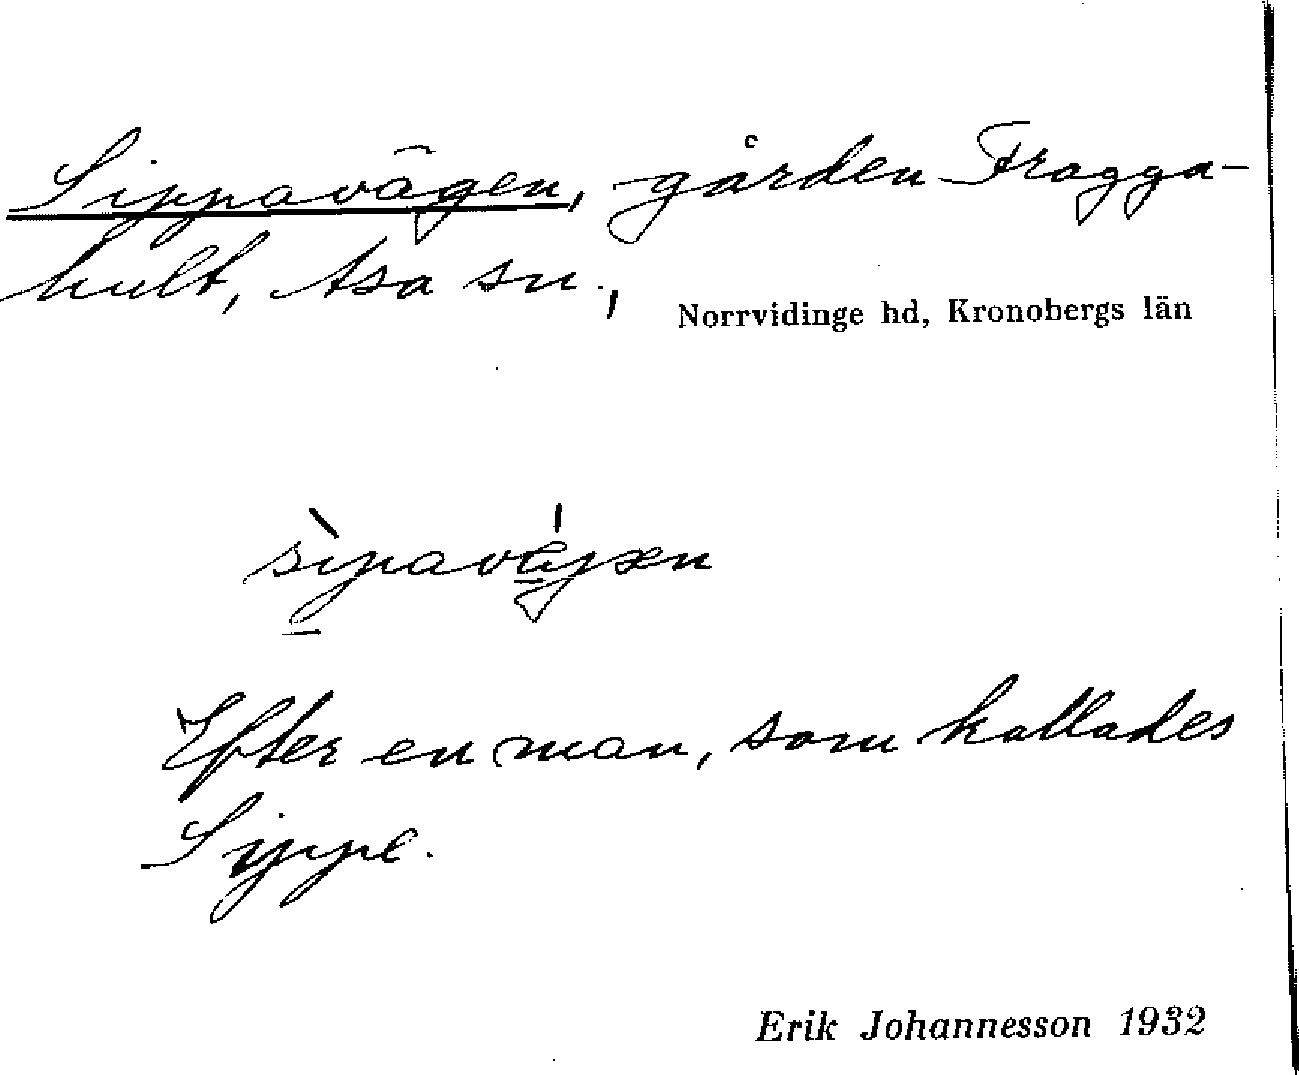 Sippavägen, gården Fragga-
hult, Asa sn.,
Norrvidinge hd, Kronobergs län
Efter en man, som kallades
Sippe.
Erik Johannesson 1932